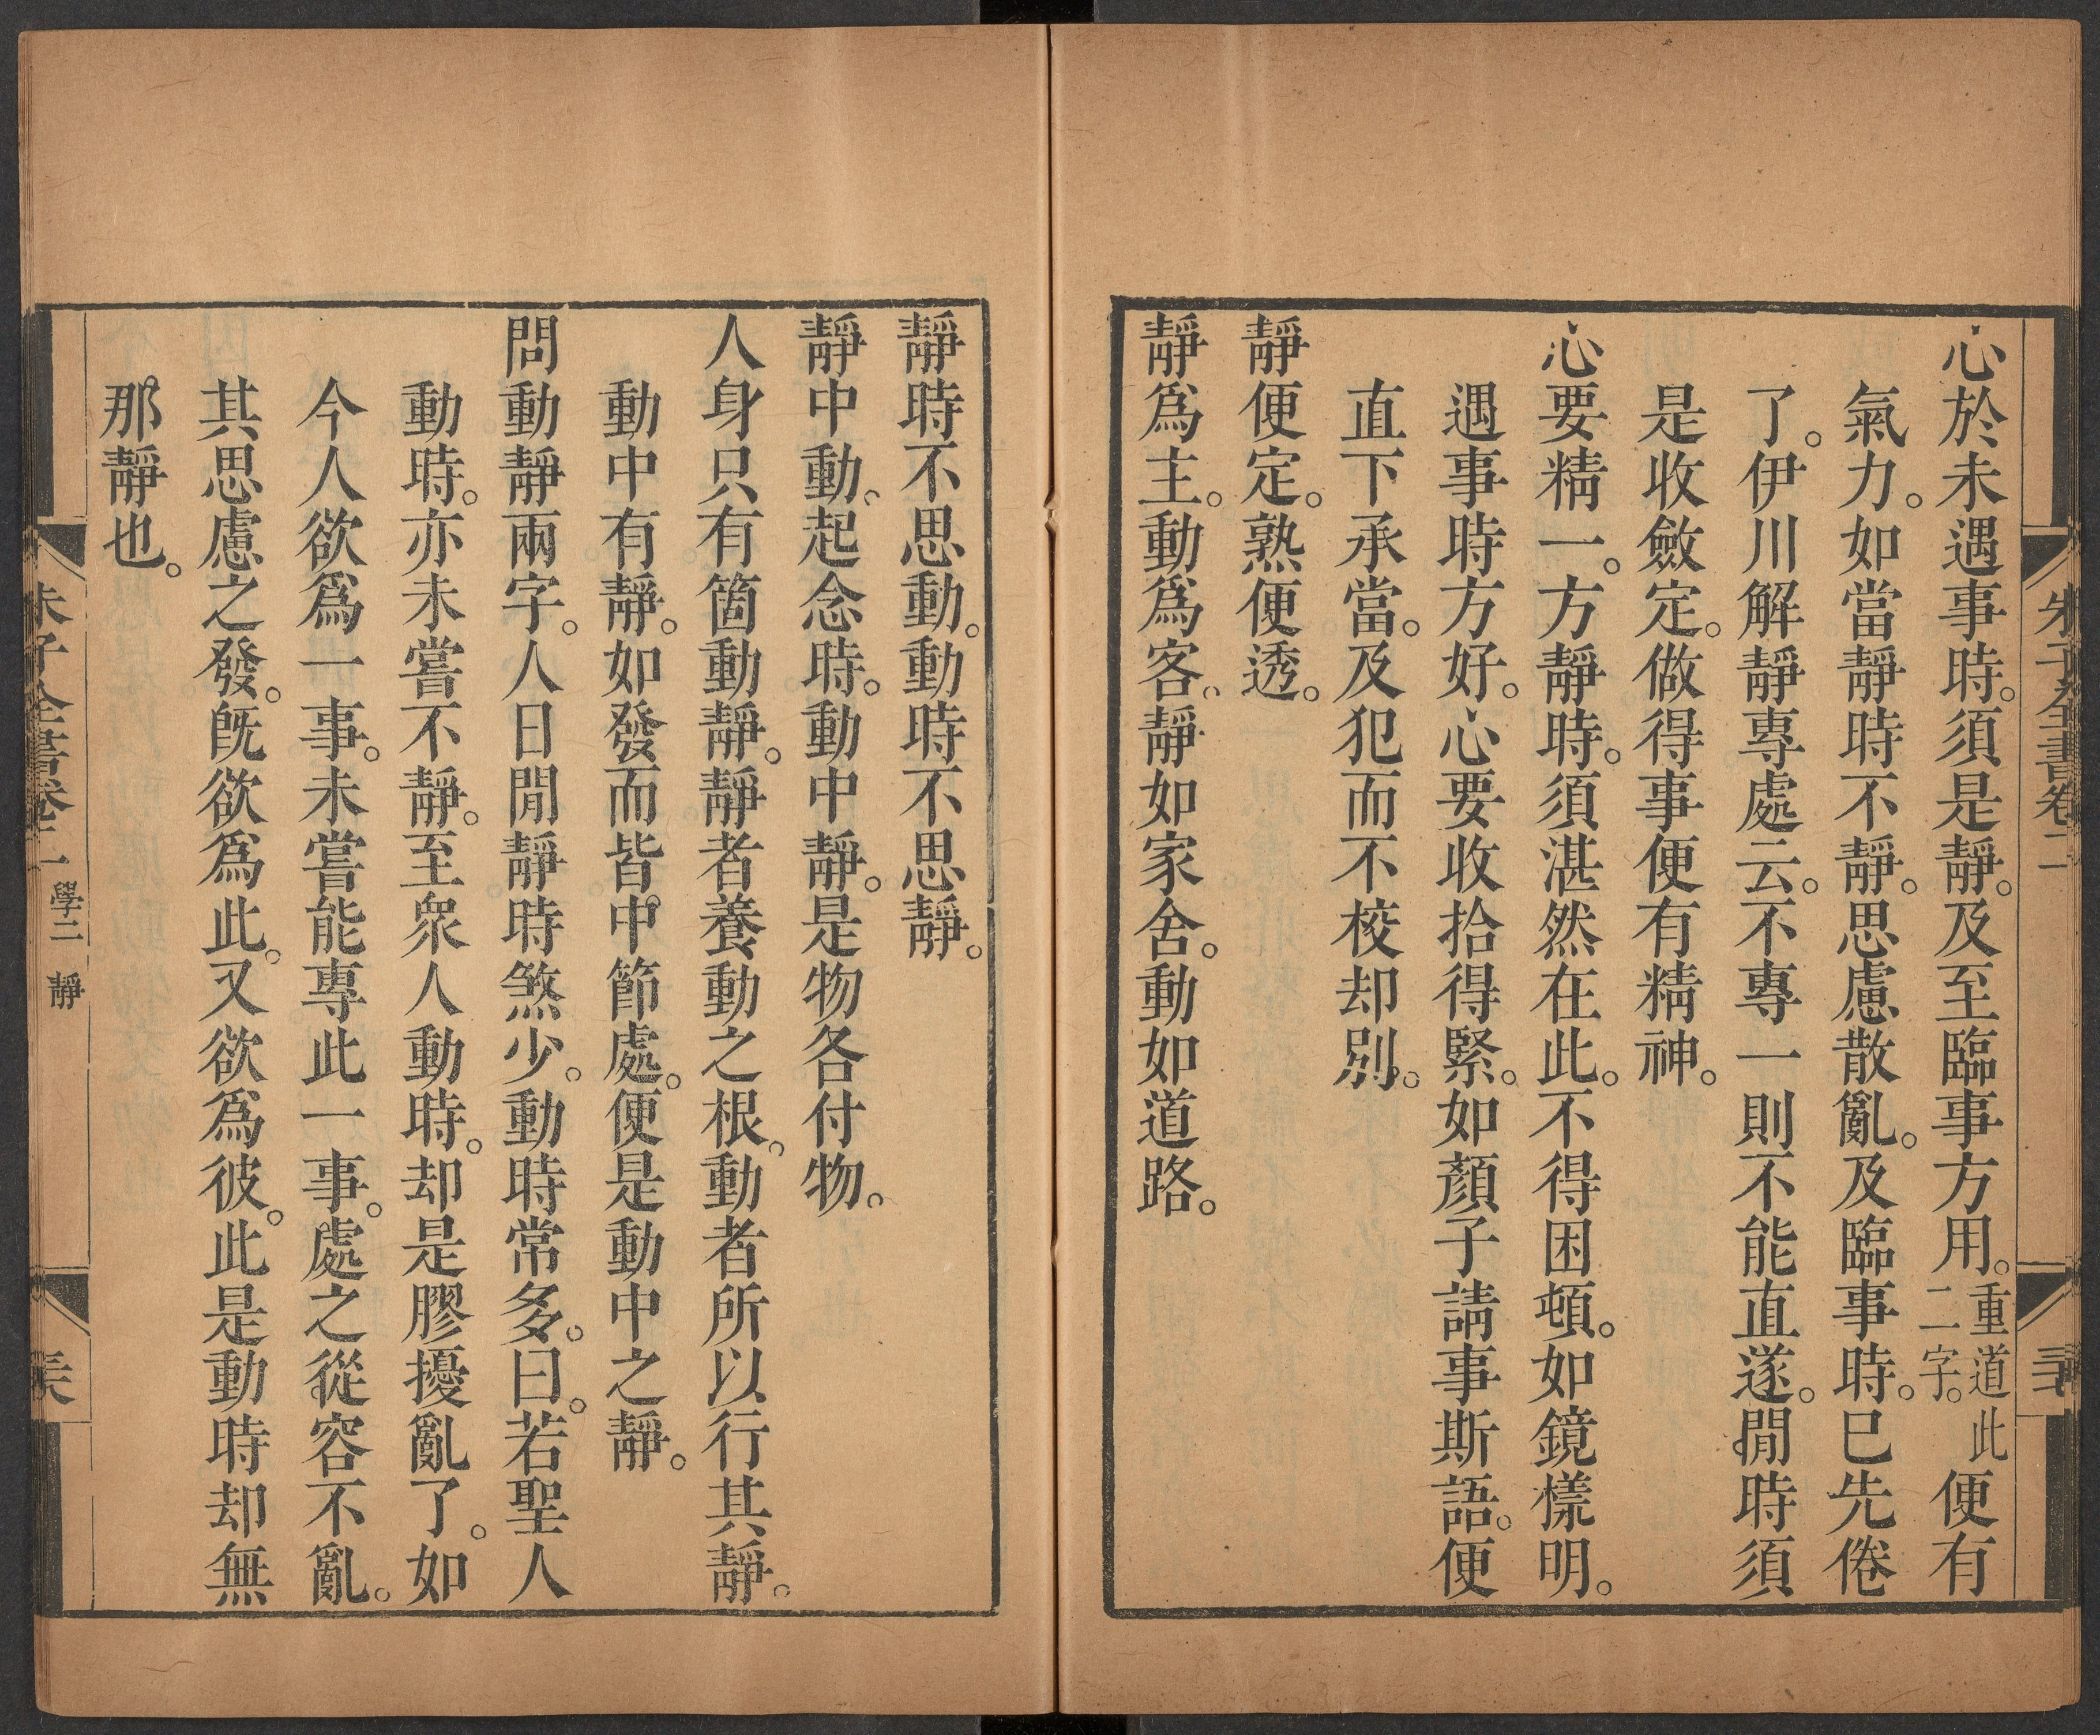 朱子全書卷二
心於未遇事時。須是靜。及至臨事方用。重道此二字。便有
氣力。如當靜時不靜。思慮散亂。及臨事時。已先倦
了。伊川解靜專處云。不專一則不能直遂。閒時須
是收斂定。做得事便有精神。
心要精一。方靜時。須湛然在此。不得困頓。如鏡樣明。
遇事時方好。心要收拾得緊。如顏子請事斯語。便
直下承當。及犯而不校却別。
靜便定。熟便透。
靜爲主。動爲客。靜如家舍。動如道路。
靜時不思動。動時不思靜。
靜中動。起念時。動中靜。是物各付物。
人身只有箇動靜。靜者養動之根。動者所以行其靜。
動中有靜。如發而皆中節處。便是動中之靜。
問動靜兩字。人日閒靜時煞少。動時常多。曰。若聖人
動時。亦未嘗不靜。至衆人動時。却是膠擾亂了。如
今人欲爲一事。未嘗能專此一事。處之從容不亂。
其思慮之發。旣欲爲此。又欲爲彼。此是動時却無
那靜也。
朱子全書卷二 學二 靜